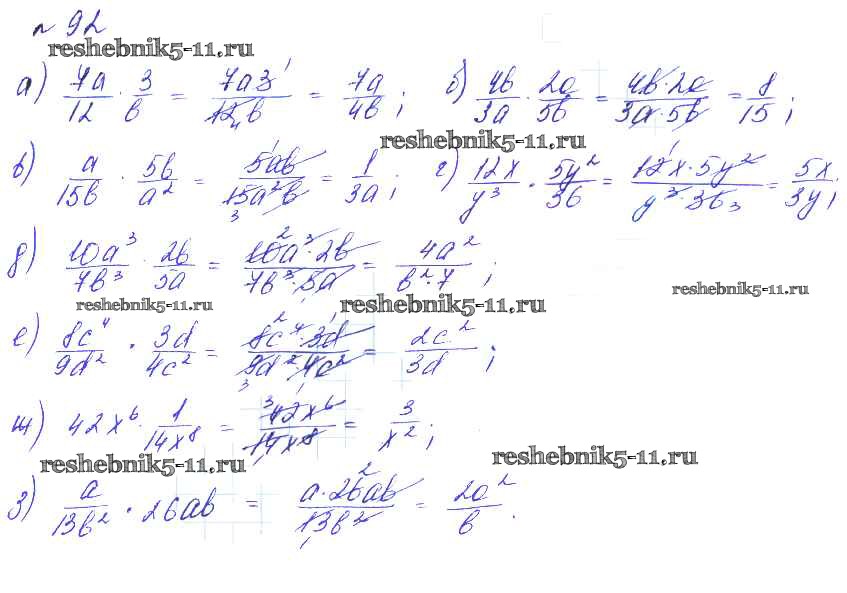 № 92
reshebnik5-11.ru
а) 7a/12 · 3/b = 7a3/12b = 7a/4b; б) 4b/3a · 2a/5b = 4b·2a/3a·5b = 8/15;
reshebnik5-11.ru
в) a/15b · 5b/a² = 5ab/15a²b = 1/3a; г) 12x/y³ · 5y²/36 = 12x·5y²/y³·36 = 5x/3y;
д) 10a³/7b³ · 2b/5a = 10a³·2b/7b³·5a = 4a²/b²·7;
reshebnik5-11.ru reshebnik5-11.ru reshebnik5-11.ru
е) 8c⁴/9d² · 3d/4c² = 8c⁴·3d/9d²·4c² = 2c²/3d;
ж) 42x⁶ · 1/14x⁸ = 42x⁶/14x⁸ = 3/x²;
reshebnik5-11.ru reshebnik5-11.ru
з) a/13b² · 26ab = a·26ab/13b² = 2a²/b.